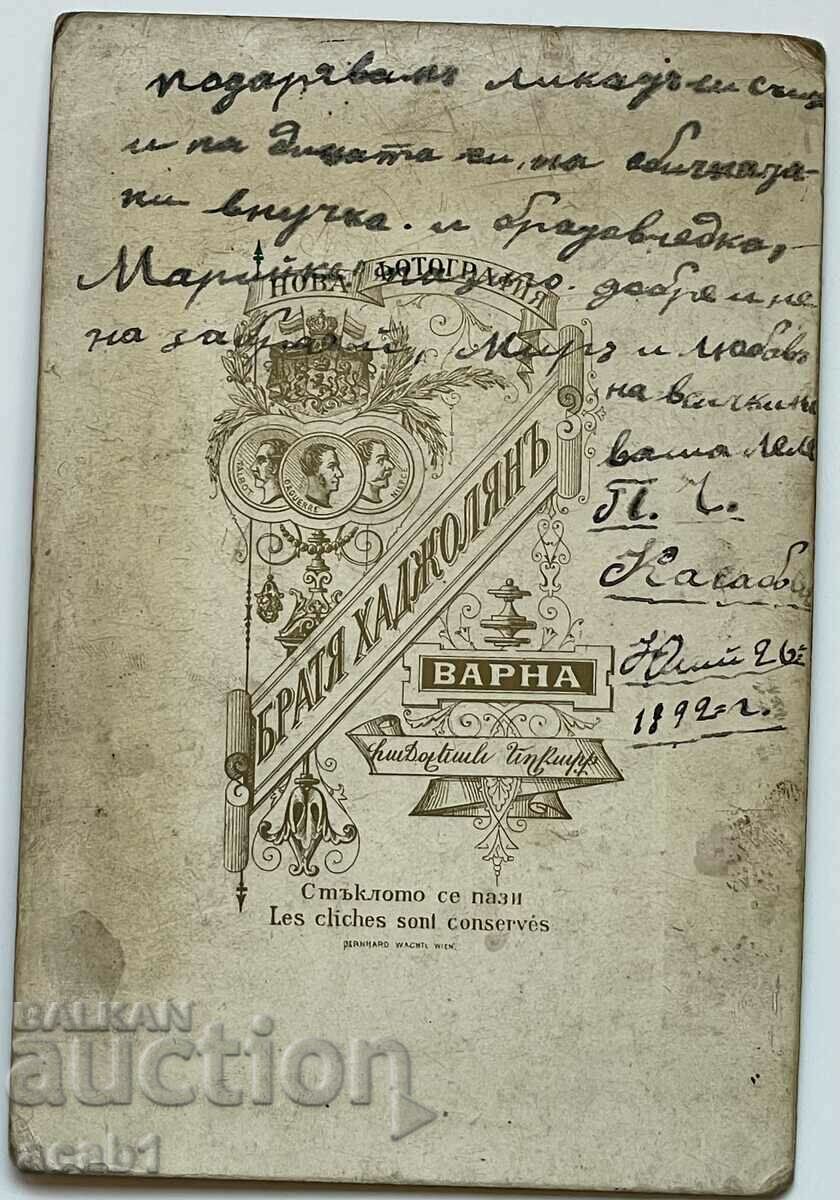 подарявамъ
и на децата си, на обичната
ни внучка. и братовчедка,
Марийка добре и не
на забравяй, Миръ и любовь
на всички
ваша Леля
П. Ч.
Касабова
Юлий 26й
1892 г.
НОВА ФОТОГРАФИЯ
TALBOT DAGUERRE NIEPCE
БРАТЯ ХАДЖОЛЯНЪ
ВАРНА
Стъклото се пази
Les cliches sont conservés
BERNHARD WACHTL WIEN.
BALKAN
auction
acab1